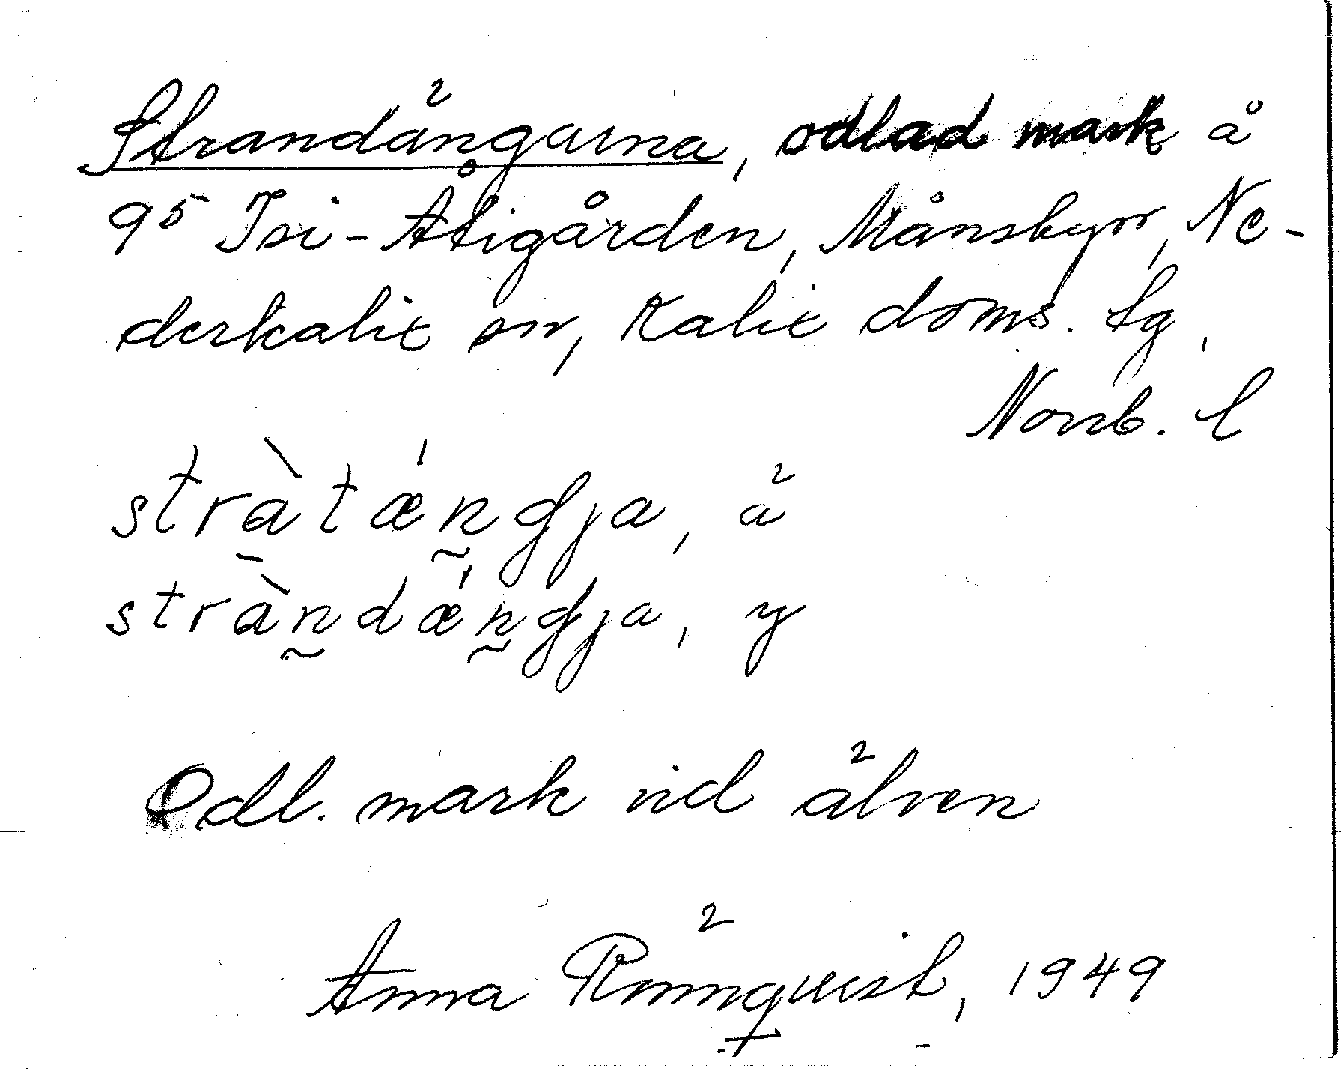 Strandängarna, odlad mark å
9⁵ Isi-Åtigården, Månsbyn, Ne-
derkalix sn, Kalix doms. lg,
Norrb. l
stràtǽngja, ä
stràndǽngja, y
Odl. mark vid älven
Anna Rönnqvist, 1949